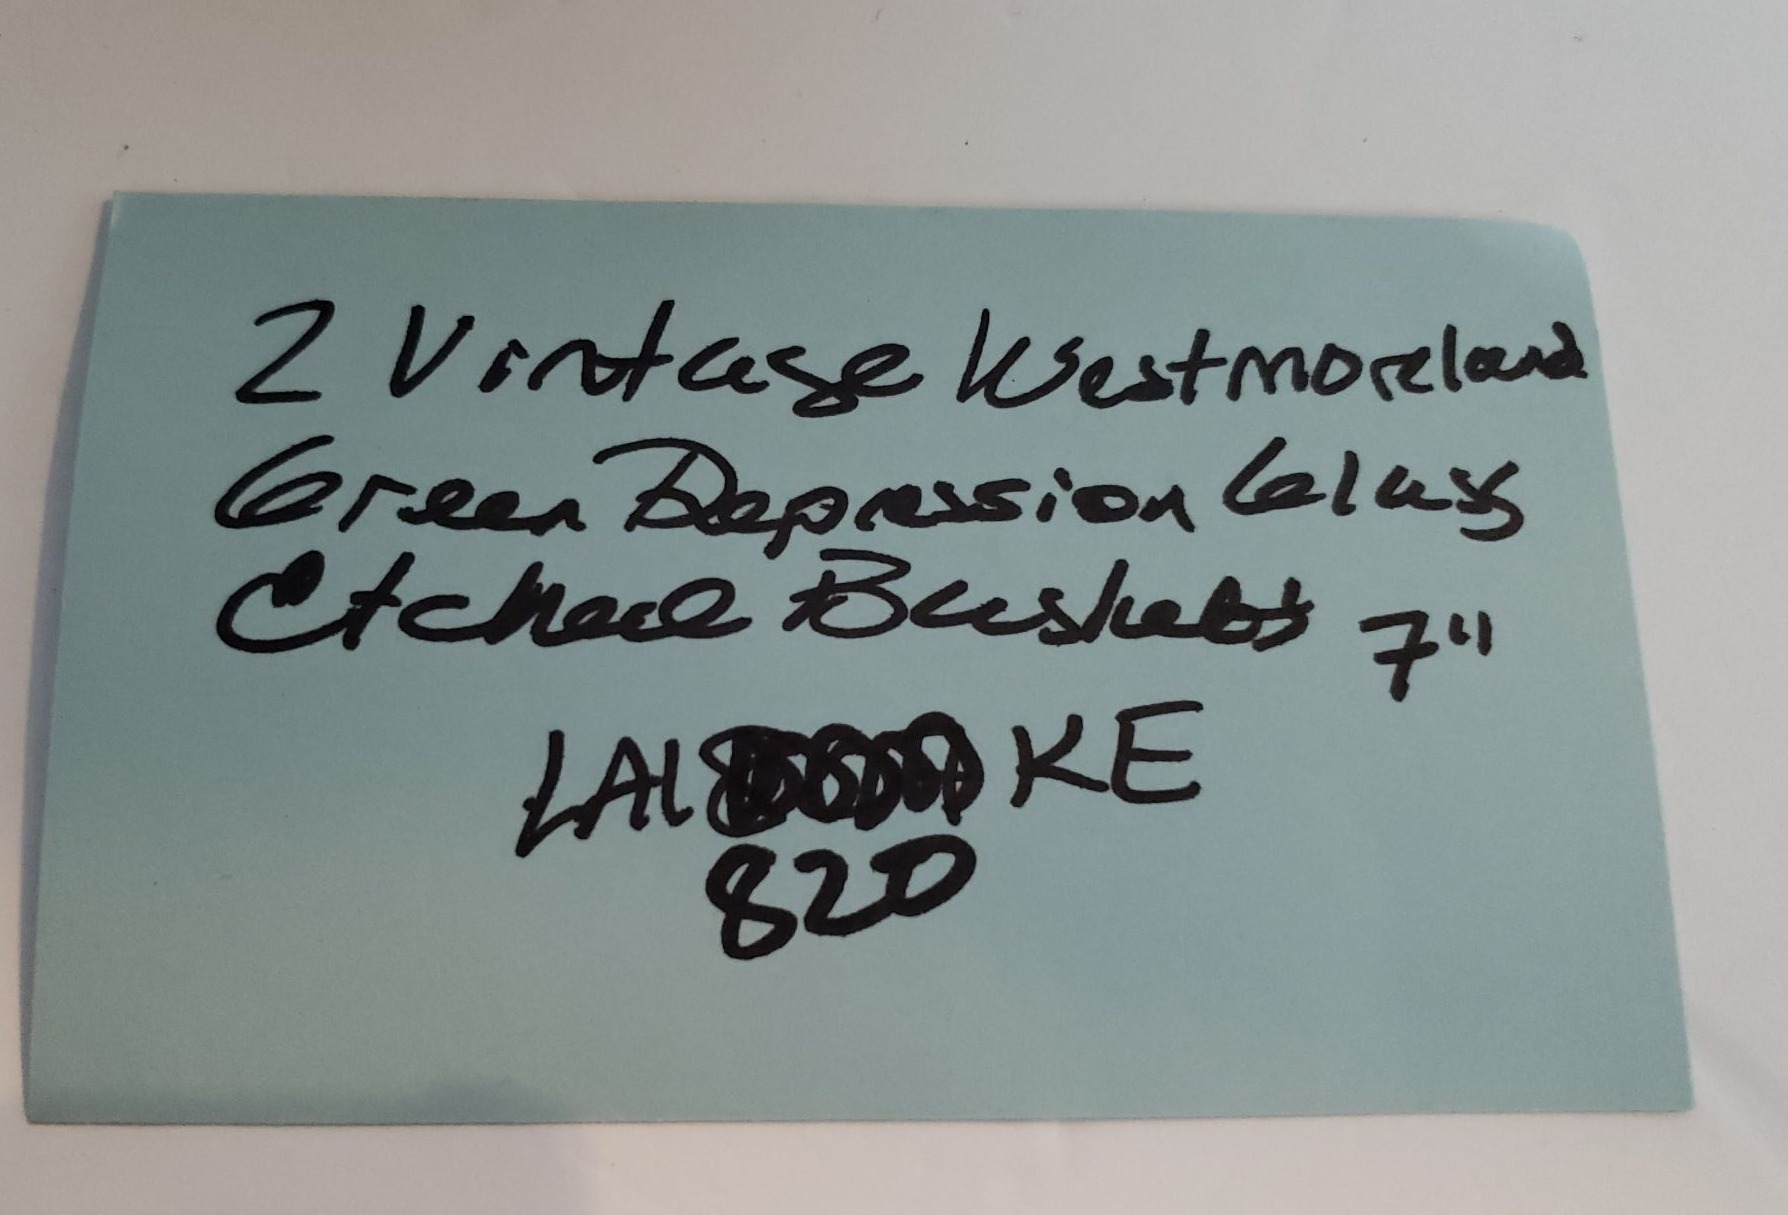 2 Vintage Westmoreland
Green Depression Glass
Etched Baskets 7"
LAI KE
820